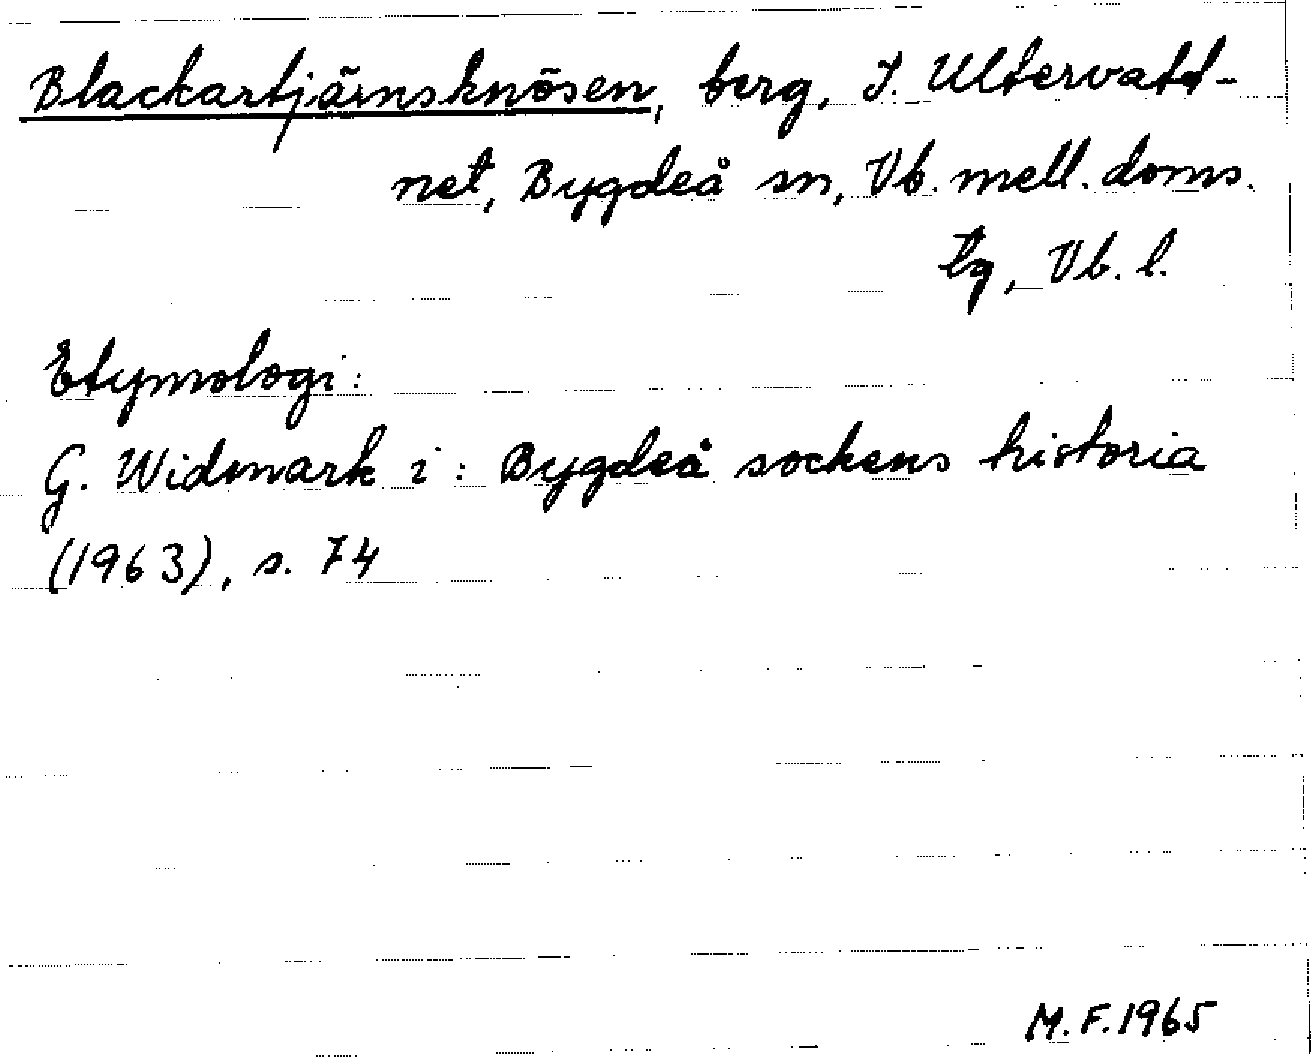 Blackartjärnsknösen, berg, I. Ultervatt-
net, Bygdeå sn, Vb. mell. doms.
tg, Vb. l.
Etymologi:
G. Widmark i: Bygdeå sockens historia
(1963), s. 74
M.F. 1965